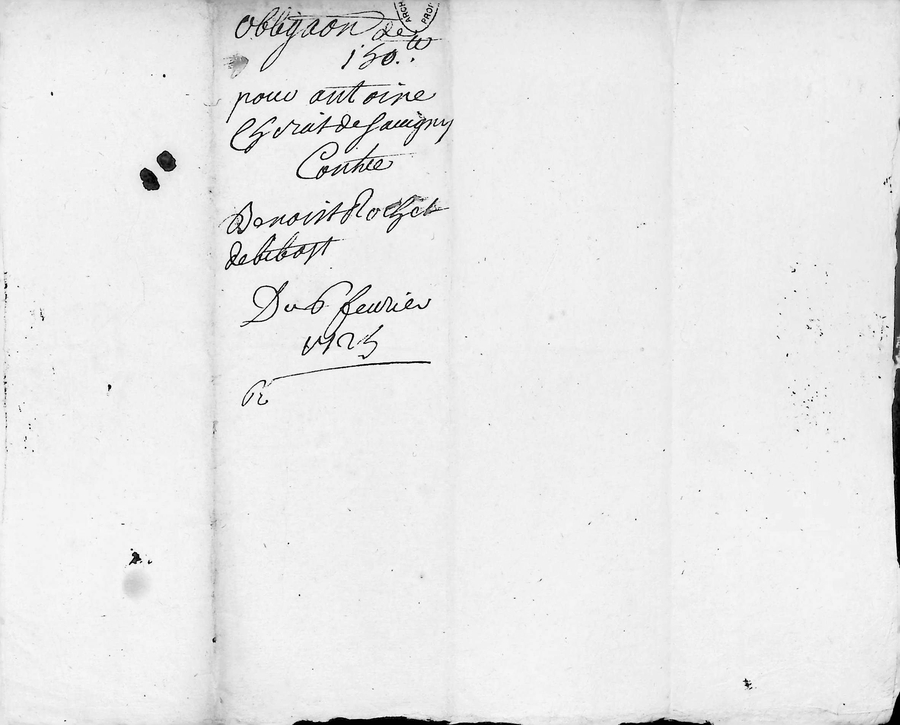 obligaon de
150.tt
pour antoine
Cherat de Sauigny
Contre
Benoist Rochet
de bibost
Du 6 feurier
1725
R
ARCH
PROF